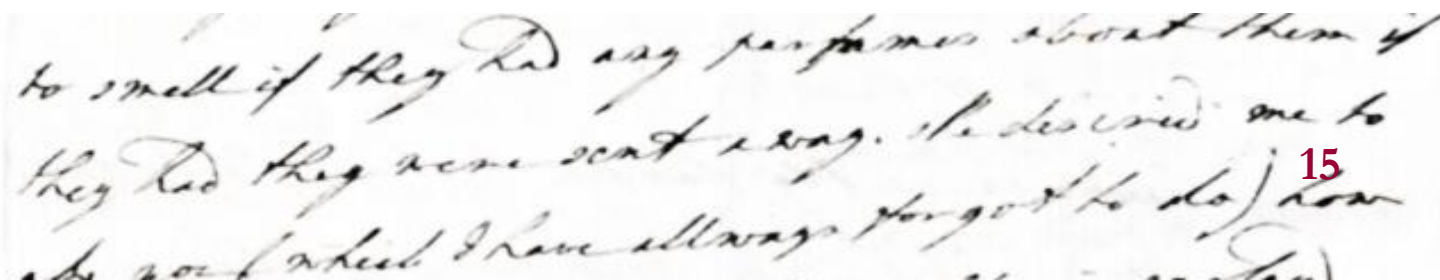 to smell if they had any perfumes about them if
they had they were sent away. She desired me to
15
ask you (which I have allways forgot to do) how